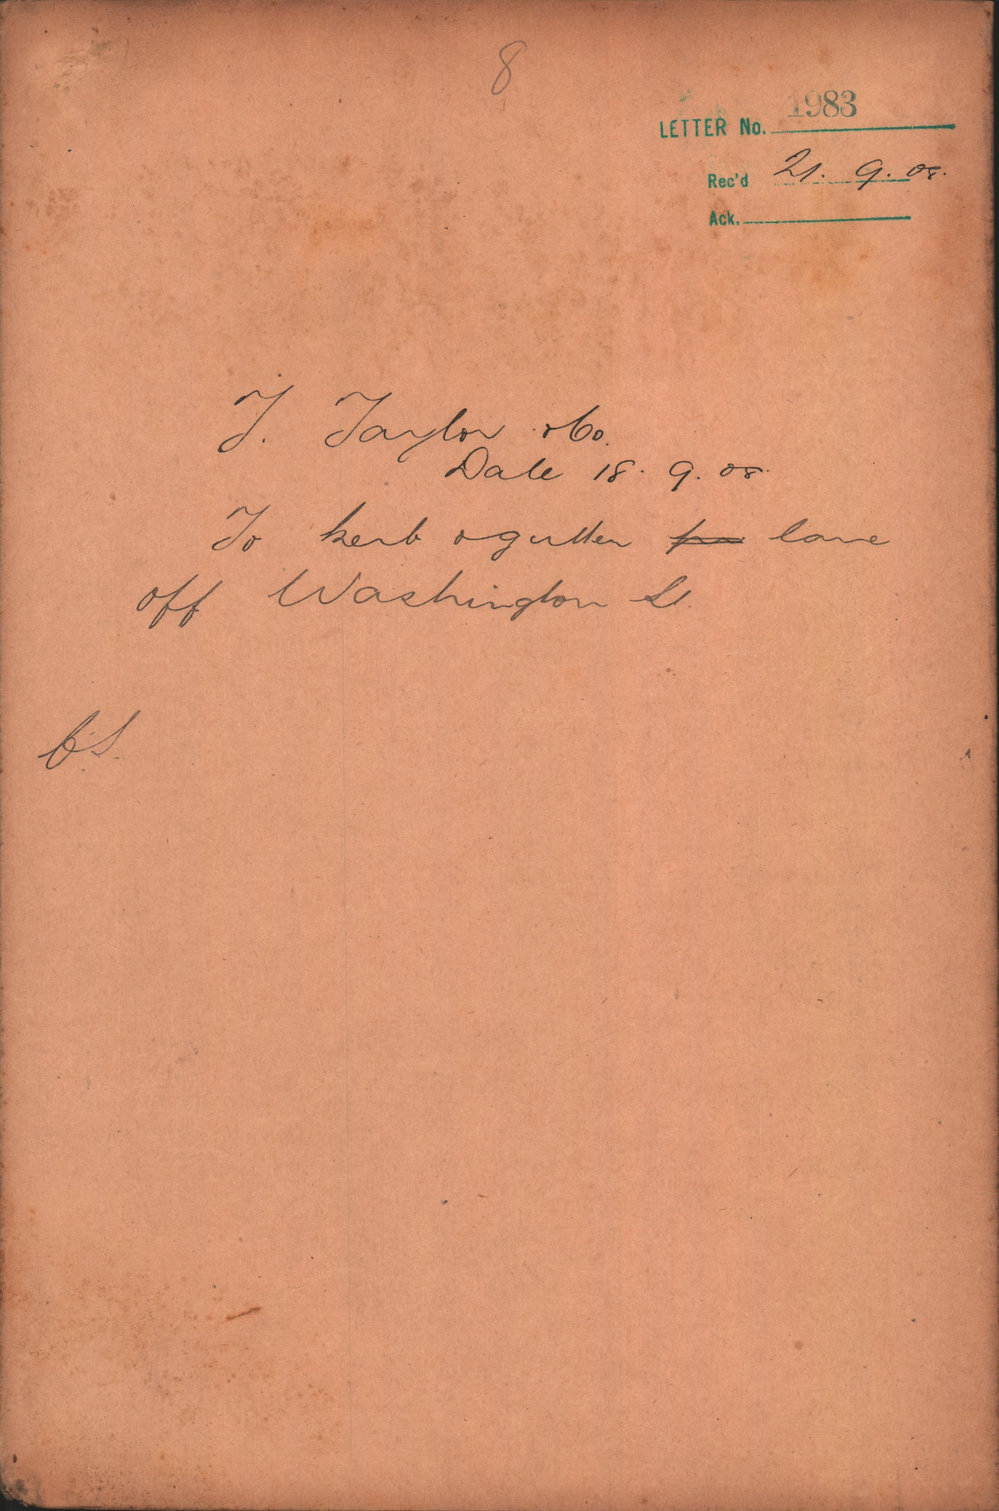 8
LETTER No. 1983
Rec'd 21. 9. 08.
Ack.
T. Taylor & Co.
Date 18. 9. 08.
To kerb & gutter lane
off Washington St.
C.S.